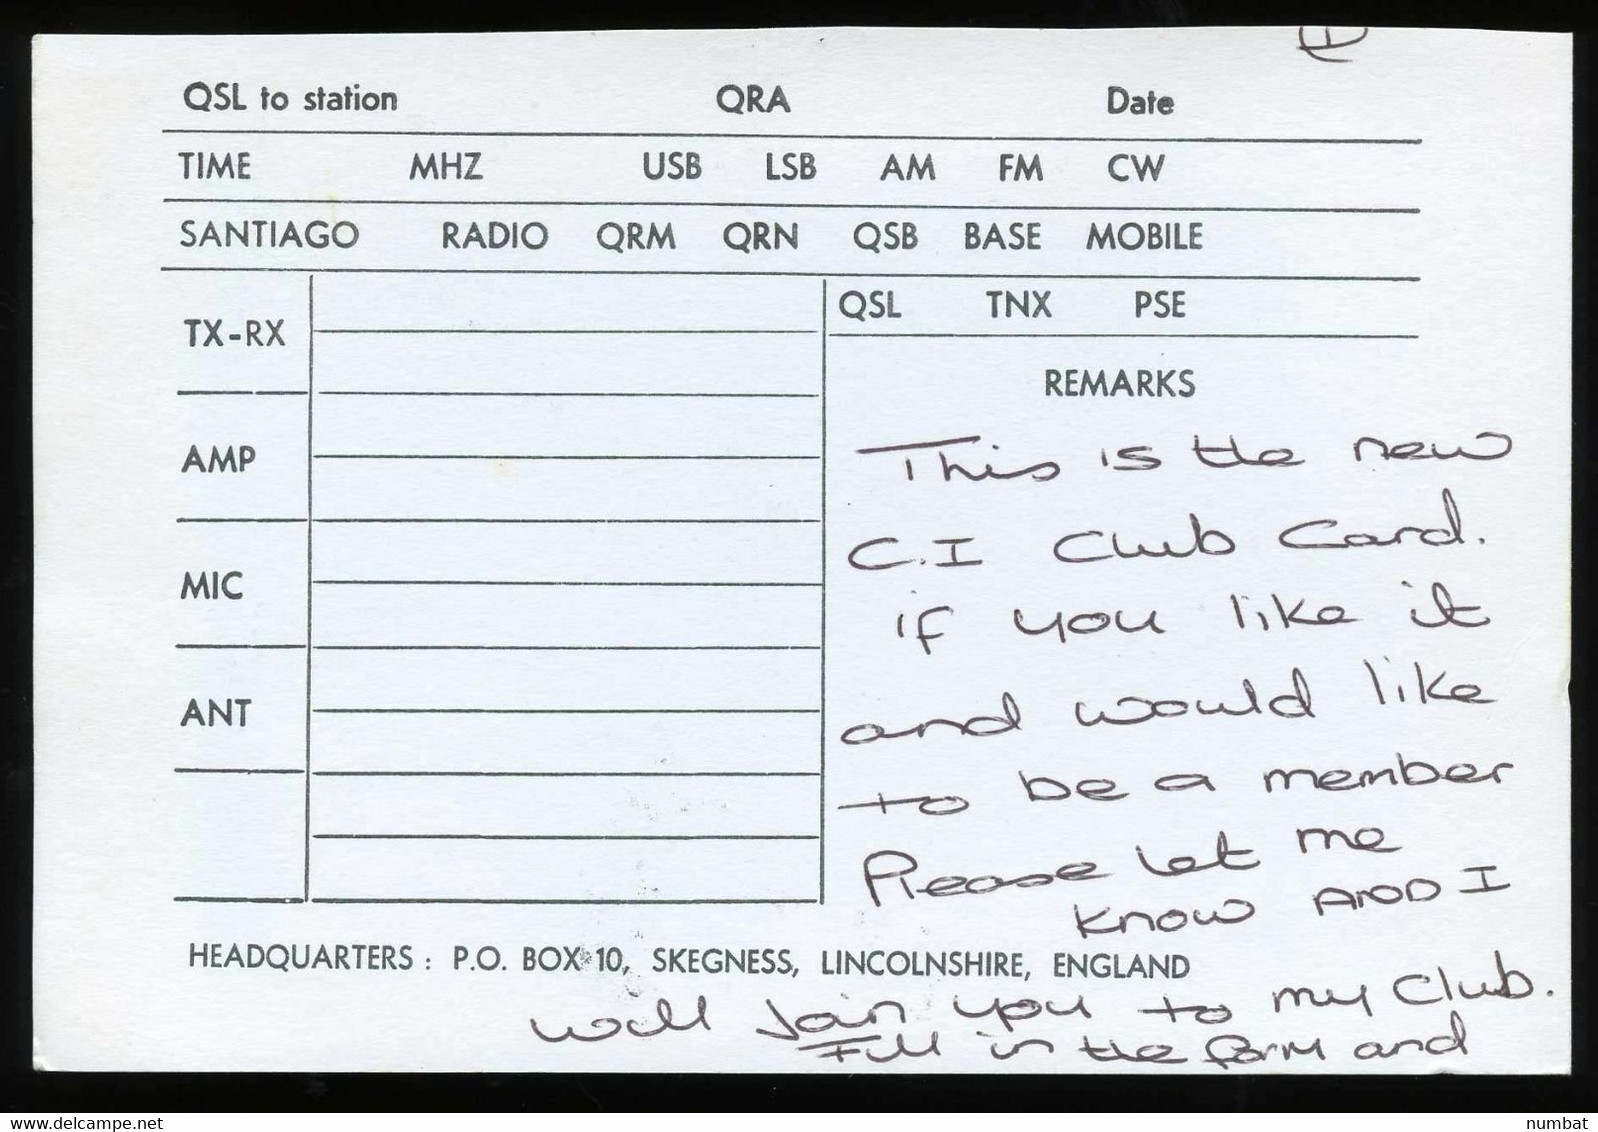 1
QSL to station QRA Date
TIME MHZ USB LSB AM FM CW
SANTIAGO RADIO QRM QRN QSB BASE MOBILE
QSL TNX PSE
TX-RX
AMP
MIC
ANT
REMARKS
This is the new
C.I Club Card.
if you like it
and would like
to be a member
Please let me
know AND I
HEADQUARTERS : P.O. BOX 10, SKEGNESS, LINCOLNSHIRE, ENGLAND
will Join you to my Club.
Fill in the form and
www.delcampe.net
numbat